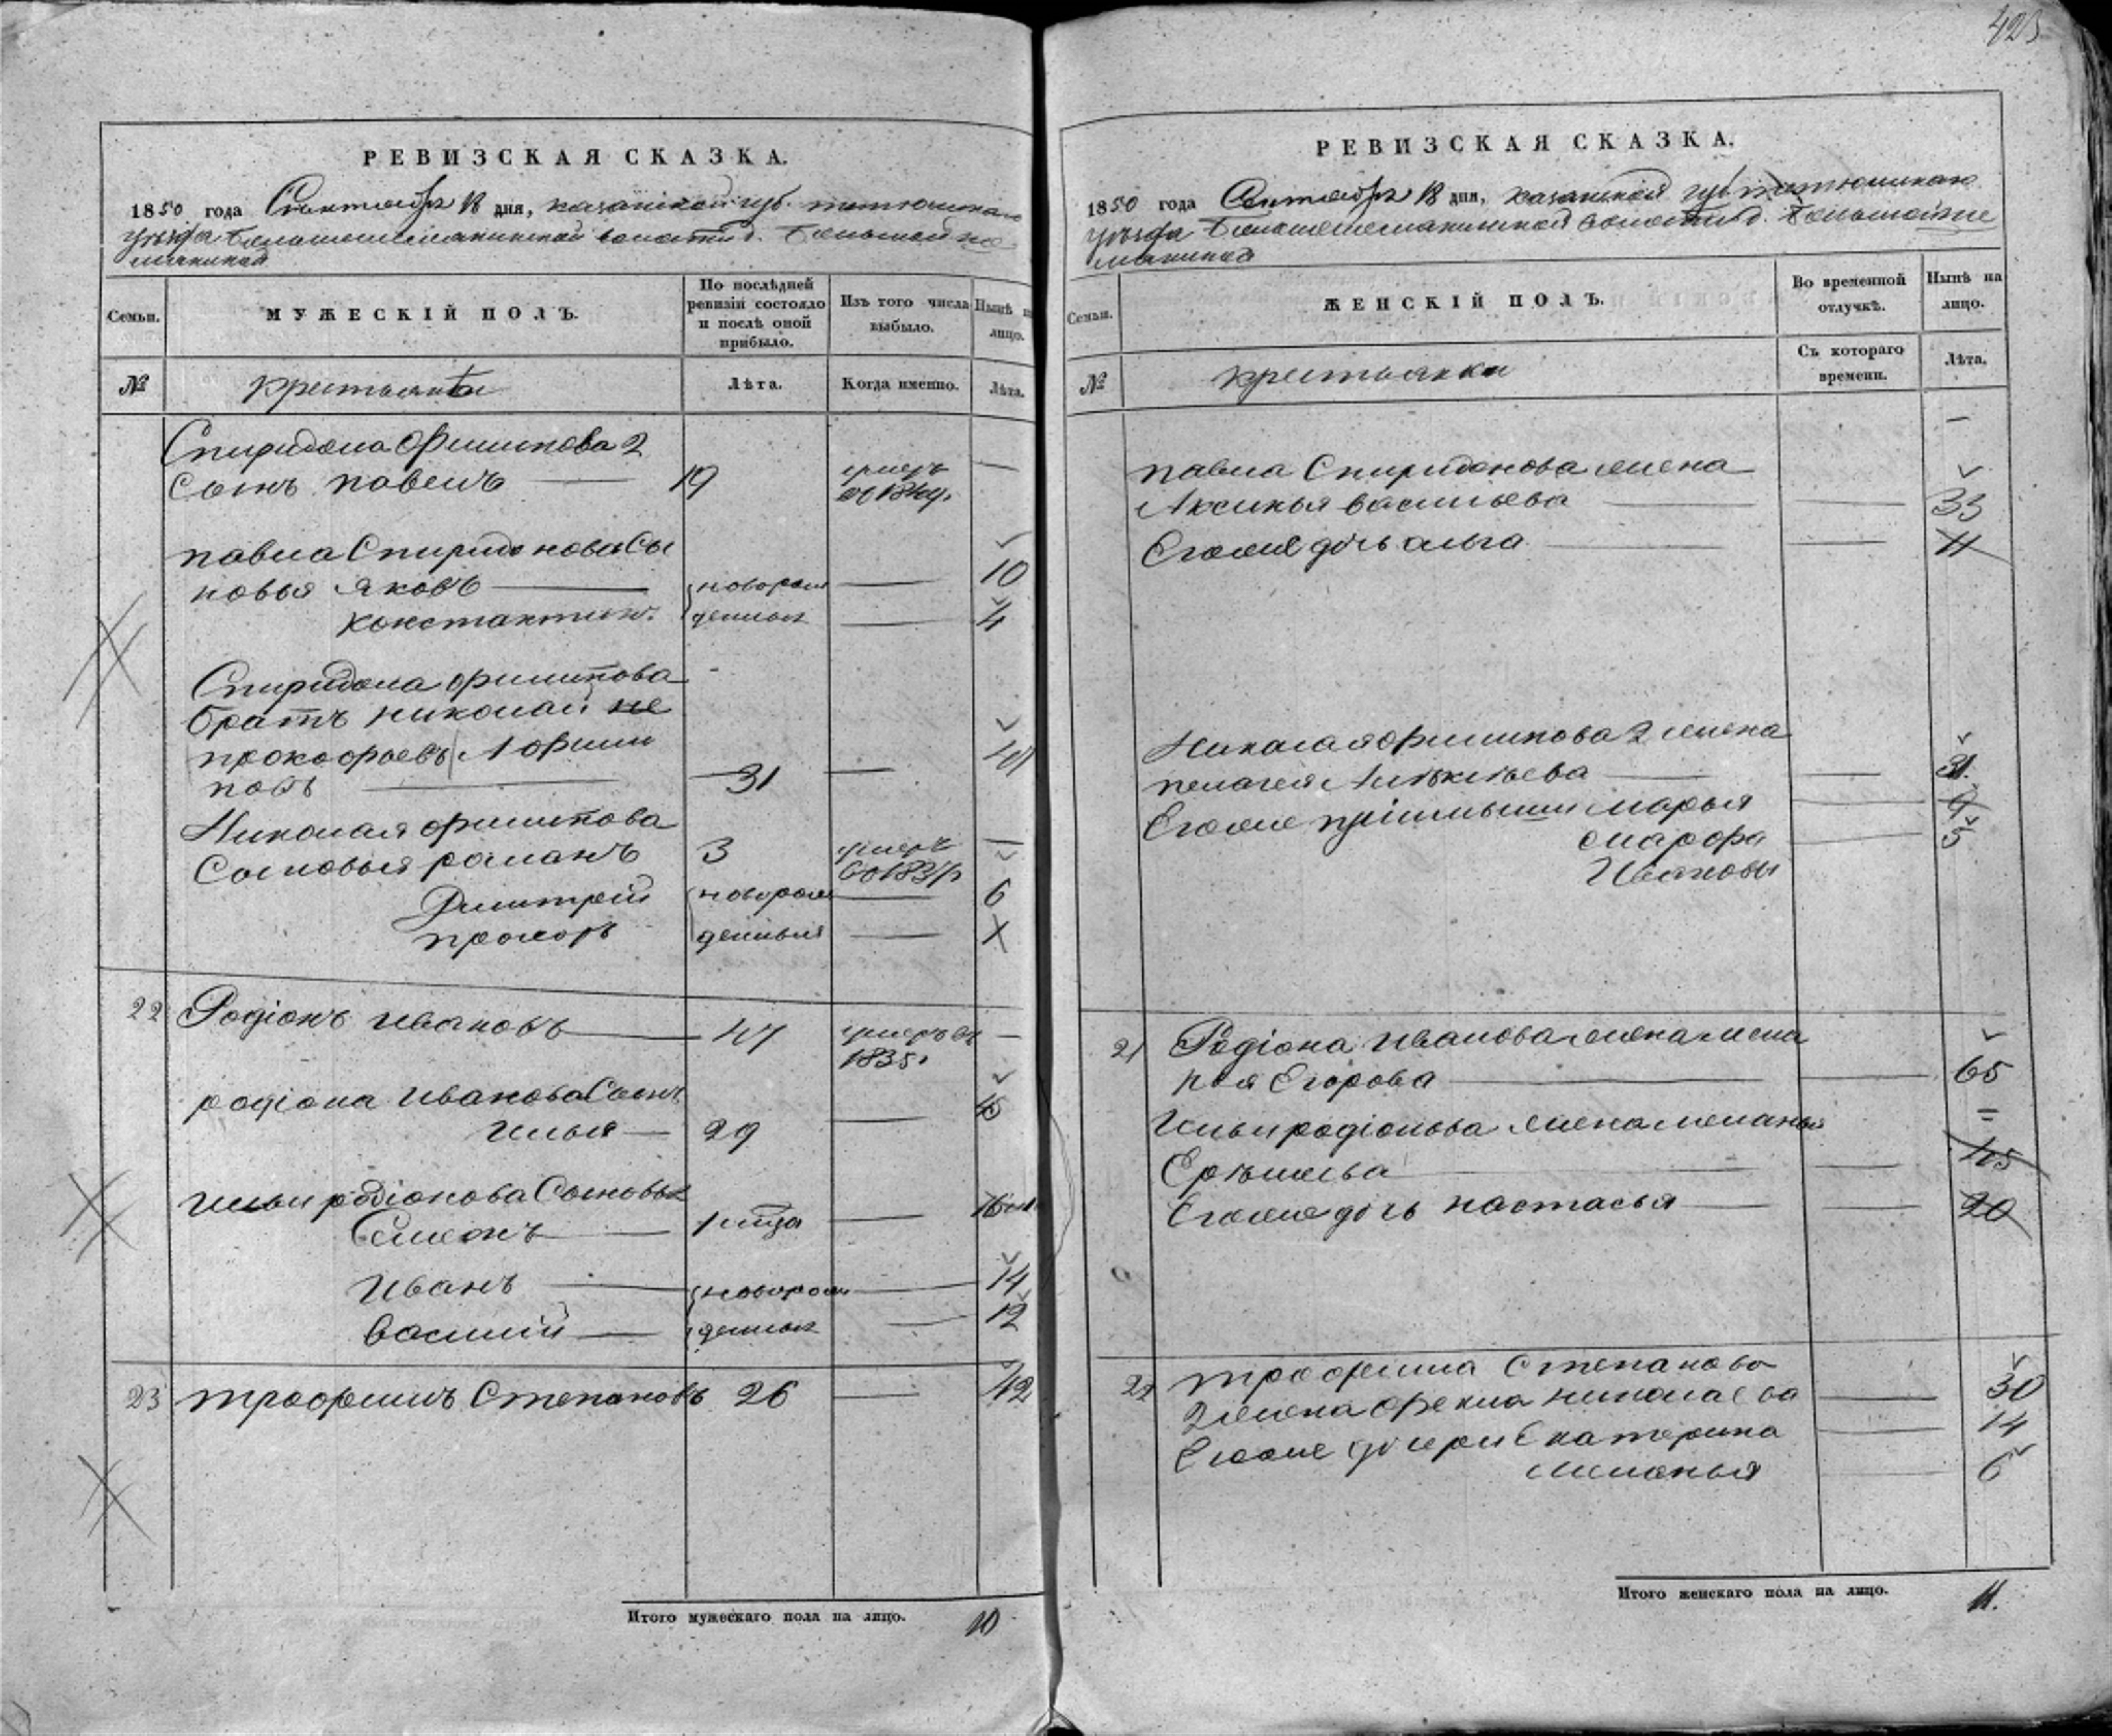 РЕВИЗСКАЯ СКАЗКА.
1850 года Сентября 18 дня, казанской губ. тетюшскаго
уезда волости д. Большой
Семьи.
МУЖЕСКІЙ ПОЛЪ.
По послѣдней ревизіи состояло и послѣ оной прибыло.
Изъ того числа выбыло.
Нынѣ на лицо.
№
крестьяне
Лѣта.
Когда именно.
Лѣта.
Спиридона Филипова 2
Сынъ павелъ 19 умеръ —
павла Спиридонова Сы
новья яковъ новорож 10
константинъ. денные 4
Спиридона филипова
братъ николай не
прокофьевъ А Фили
повъ 31
Николая филипова
Сыновья романъ 3 умеръ —
Дмитрей новорож 6
прохоръ денные
22 Родіонъ ивановъ 47 умеръ въ —
1835.
родіона иванова Сынъ
илья 29
ильи родіонова Сыновья
Семенъ
иванъ новорож 14
василий денные 12
23 трофимъ Степановъ 26 42
Итого мужескаго пола на лицо. 10
423
РЕВИЗСКАЯ СКАЗКА.
1850 года Сентября 18 дня, казанской губ тетюшскаго
уезда волости д. Большой
Семьи.
ЖЕНСКІЙ ПОЛЪ.
Во временной отлучкѣ.
Нынѣ на лицо.
№
крестьянки
Съ котораго времени.
Лѣта.
павла Спиридонова жена
Аксинья васильева 33
Егоже дочь ольга 11
Николая филипова 2 жена
пелагея Алѣксѣева 31.
Егоже марья 9
марфа 5
Ивановы
21 Родіона иванова жена мела
нья Егорова 65
Ильи родіонова жена меланья
45
Егоже дочь настасья 20
22 трофима Степанова
2 жена фекла николаева 30
Егоже дочери Екатерина 14
меланья 6
Итого женскаго пола на лицо. 11.